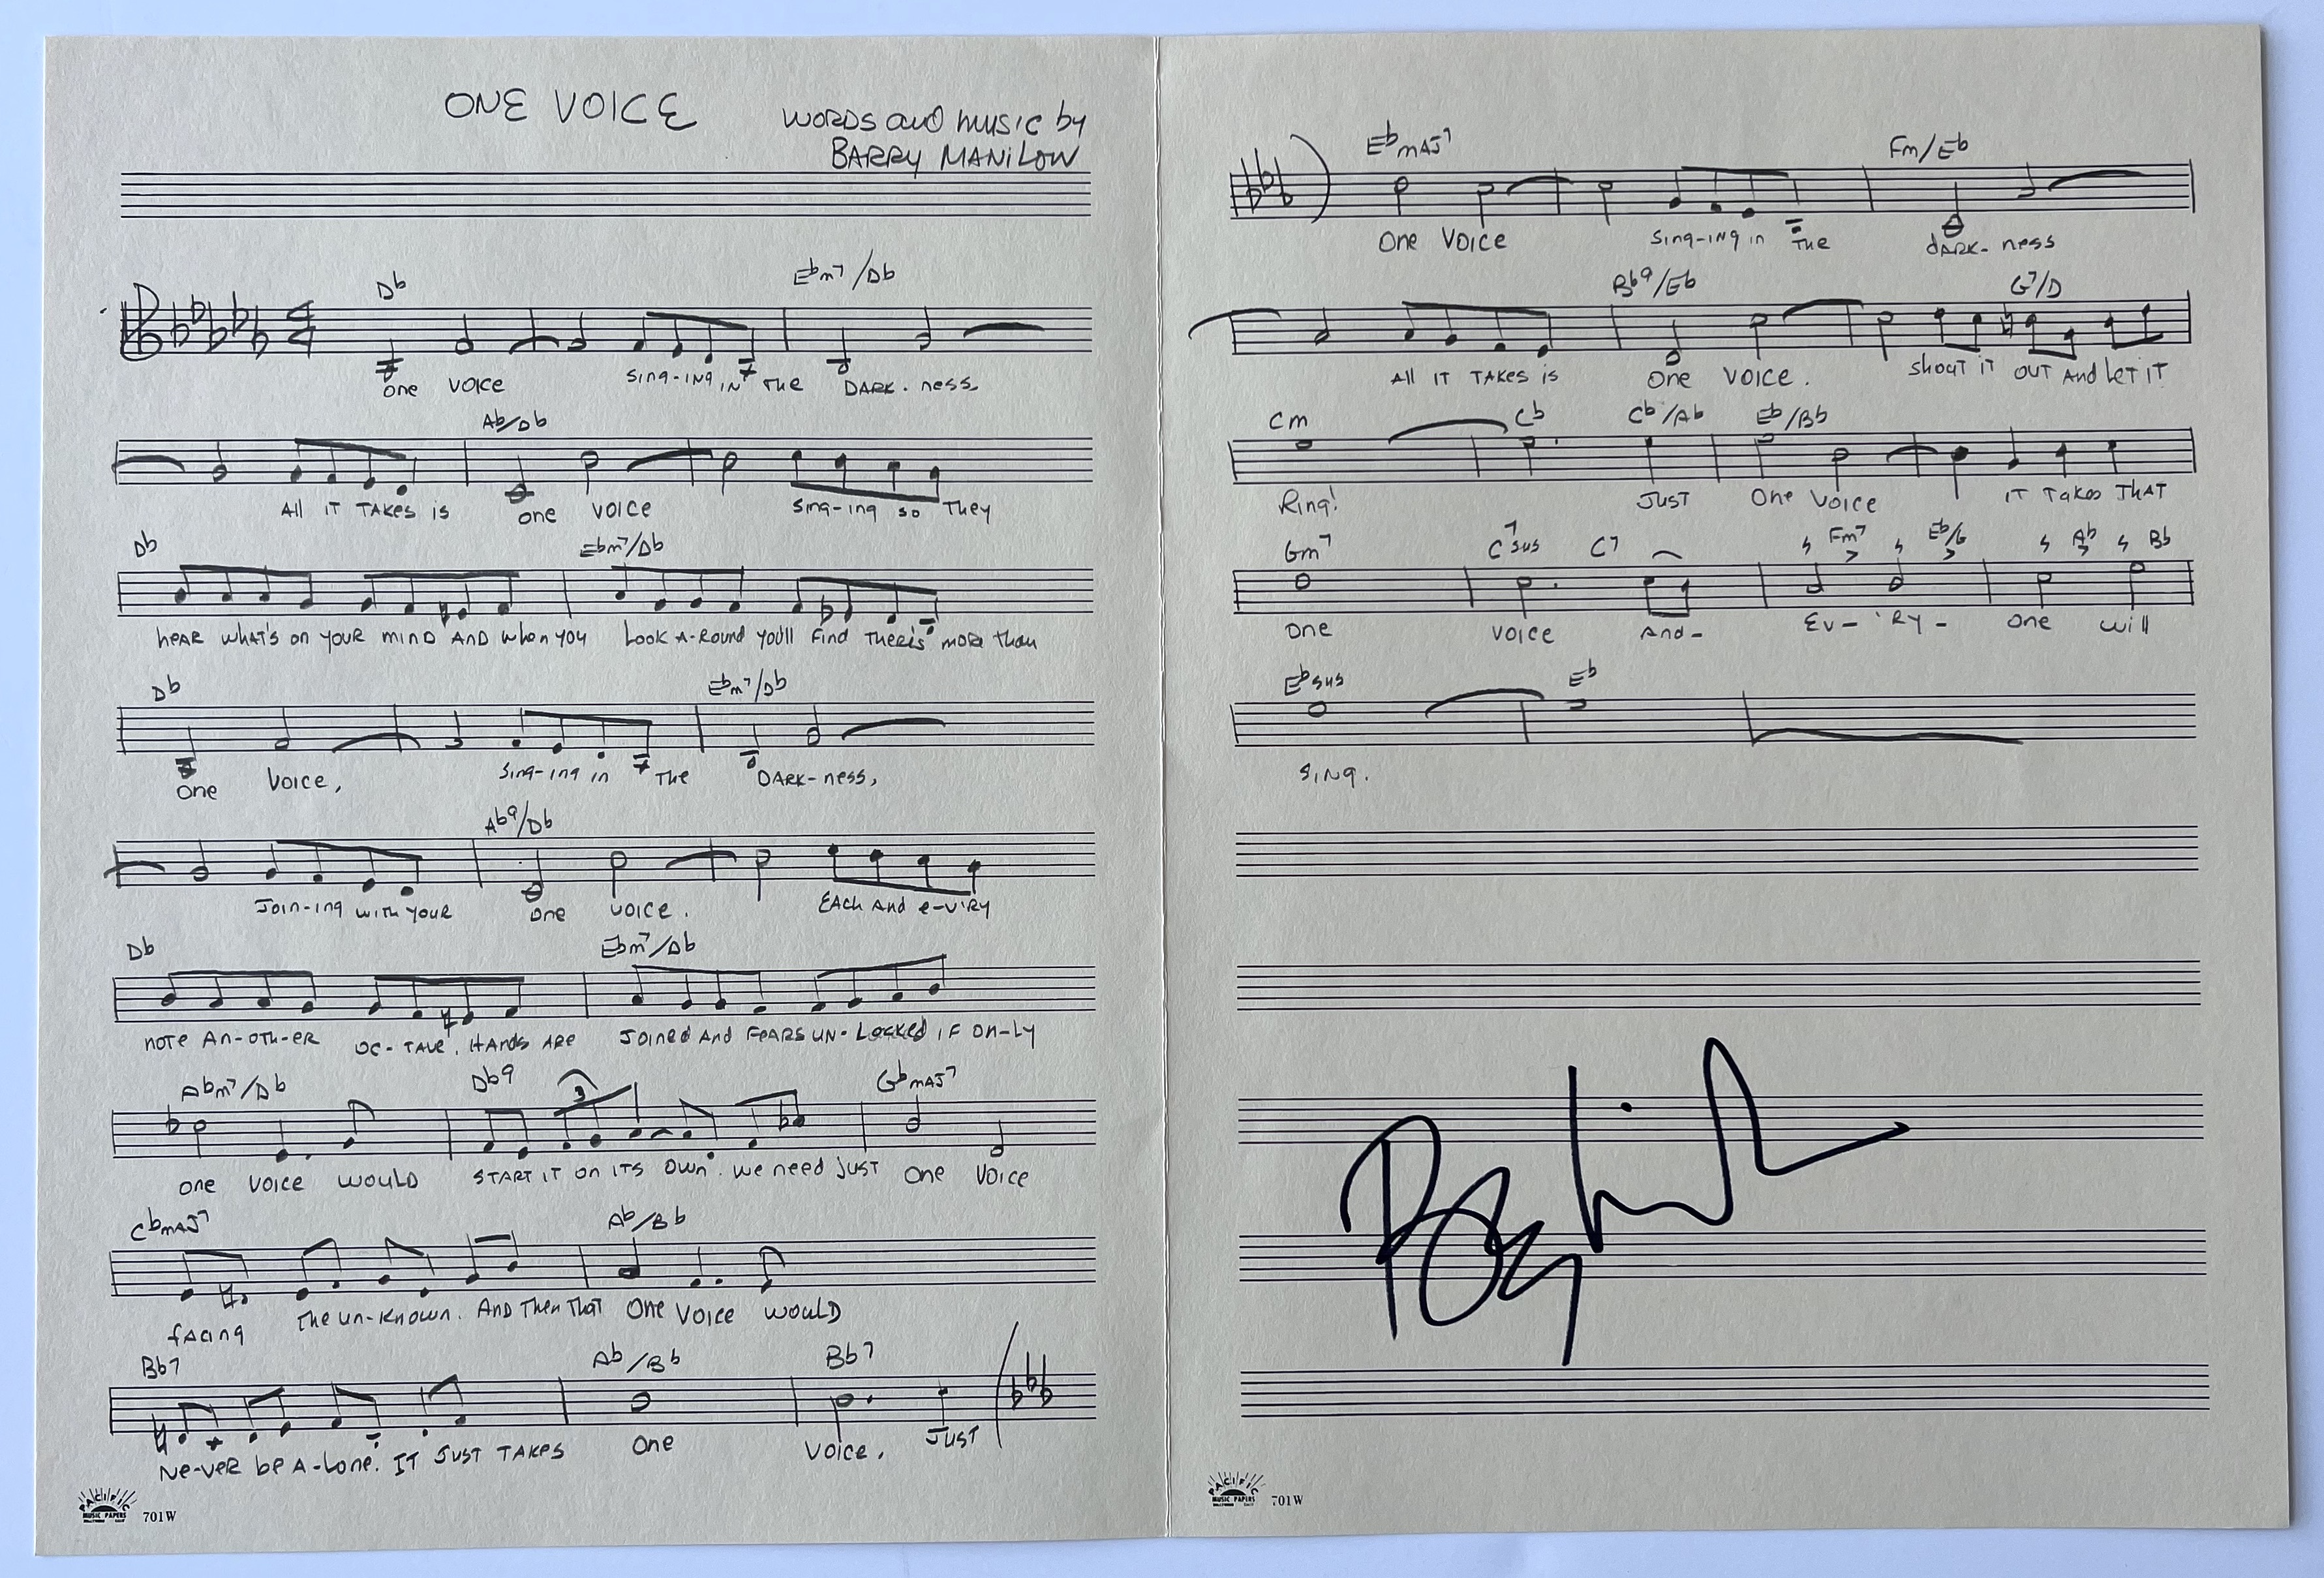 ONE VOICE
WORDS and MUSIC by
BARRY MANILOW
Db Ebm7/Db
One Voice Sing-ing in the Dark-ness.
Ab/Db
All it takes is one voice Sing-ing so they
Db Ebm7/Db
hear what's on your mind and when you look a-round you'll find there's more than
Db Ebm7/Db
One Voice, Sing-ing in the Dark-ness,
Ab9/Db
Join-ing with your one voice. Each and e-v'ry
Db Ebm7/Db
note An-oth-er oc-tave. Hands are Joined and fears un-locked if on-ly
Abm7/Db Db9 3 Gbmaj7
one voice would start it on its own. We need just one voice
Cbmaj7 Ab/Bb
facing the un-known. And then that one voice would
Bb7 Ab/Bb Bb7
Ne-ver be a-lone. It just takes one voice. Just
PACIFIC
MUSIC PAPERS
701W
Ebmaj7 Fm/Eb
One Voice Sing-ing in the dark-ness
Bb9/Eb G7/D
All it takes is one voice. Shout it out and let it
Cm Cb Cb/Ab Eb/Bb
Ring! Just One Voice it takes that
Gm7 C7sus C7 Fm7 Eb/G Ab Bb
One voice And- Ev-'ry- one will
Ebsus Eb
sing.
PACIFIC
MUSIC PAPERS
701W